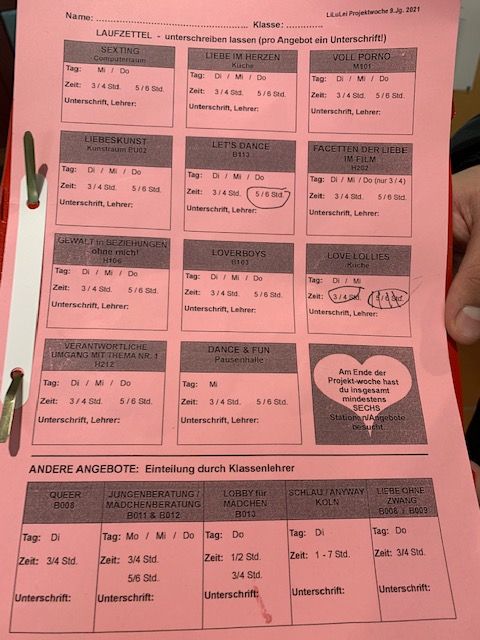 LiLuLei Projektwoche 9.Jg. 2021
Name: ........................................ Klasse: ............
LAUFZETTEL - unterschreiben lassen (pro Angebot ein Unterschrift!)
SEXTING
Computerraum
Tag: Di / Mi / Do
Zeit: 3 / 4 Std. 5 / 6 Std.
Unterschrift, Lehrer:
LIEBE IM HERZEN
Küche
Tag: Di / Mi / Do
Zeit: 3 / 4 Std. 5 / 6 Std.
Unterschrift, Lehrer:
VOLL PORNO
M101
Tag: Di / Mi / Do
Zeit: 3 / 4 Std. 5 / 6 Std.
Unterschrift, Lehrer:
LIEBESKUNST
Kunstraum BU02
Tag: Di / Mi / Do
Zeit: 3 / 4 Std. 5 / 6 Std.
Unterschrift, Lehrer:
LET'S DANCE
B113
Tag: Di / Mi / Do
Zeit: 3 / 4 Std. 5 / 6 Std.
Unterschrift, Lehrer:
FACETTEN DER LIEBE
IM FILM
H202
Tag: Di / Mi / Do (nur 3 / 4)
Zeit: 3 / 4 Std. 5 / 6 Std.
Unterschrift, Lehrer:
GEWALT in BEZIEHUNGEN
ohne mich!
H106
Tag: Di / Mi / Do
Zeit: 3 / 4 Std. 5 / 6 Std.
Unterschrift, Lehrer:
LOVERBOYS
B103
Tag: Di / Mi / Do
Zeit: 3 / 4 Std. 5 / 6 Std.
Unterschrift, Lehrer:
LOVE LOLLIES
Küche
Tag: Di / Mi
Zeit: 3 / 4 Std. 5 / 6 Std.
Unterschrift, Lehrer:
VERANTWORTLICHE
UMGANG MIT THEMA NR. 1
H212
Tag: Di / Mi / Do
Zeit: 3 / 4 Std. 5 / 6 Std.
Unterschrift, Lehrer:
DANCE & FUN
Pausenhalle
Tag: Mi
Zeit: 3 / 4 Std. 5 / 6 Std.
Unterschrift, Lehrer:
Am Ende der
Projekt-woche hast
du insgesamt
mindestens
SECHS
Stationen/Angebote
besucht.
ANDERE ANGEBOTE: Einteilung durch Klassenlehrer
QUEER
B008
Tag: Di
Zeit: 3/4 Std.
Unterschrift:
JUNGENBERATUNG /
MÄDCHENBERATUNG
B011 & B012
Tag: Mo / Mi / Do
Zeit: 3/4 Std.
5/6 Std.
Unterschrift:
LOBBY für
MÄDCHEN
B013
Tag: Do
Zeit: 1/2 Std.
3/4 Std.
Unterschrift:
SCHLAU / ANYWAY
KÖLN
Tag: Di
Zeit: 1 - 7 Std.
Unterschrift:
LIEBE OHNE
ZWANG
B008 / B009
Tag: Do
Zeit: 3/4 Std.
Unterschrift: